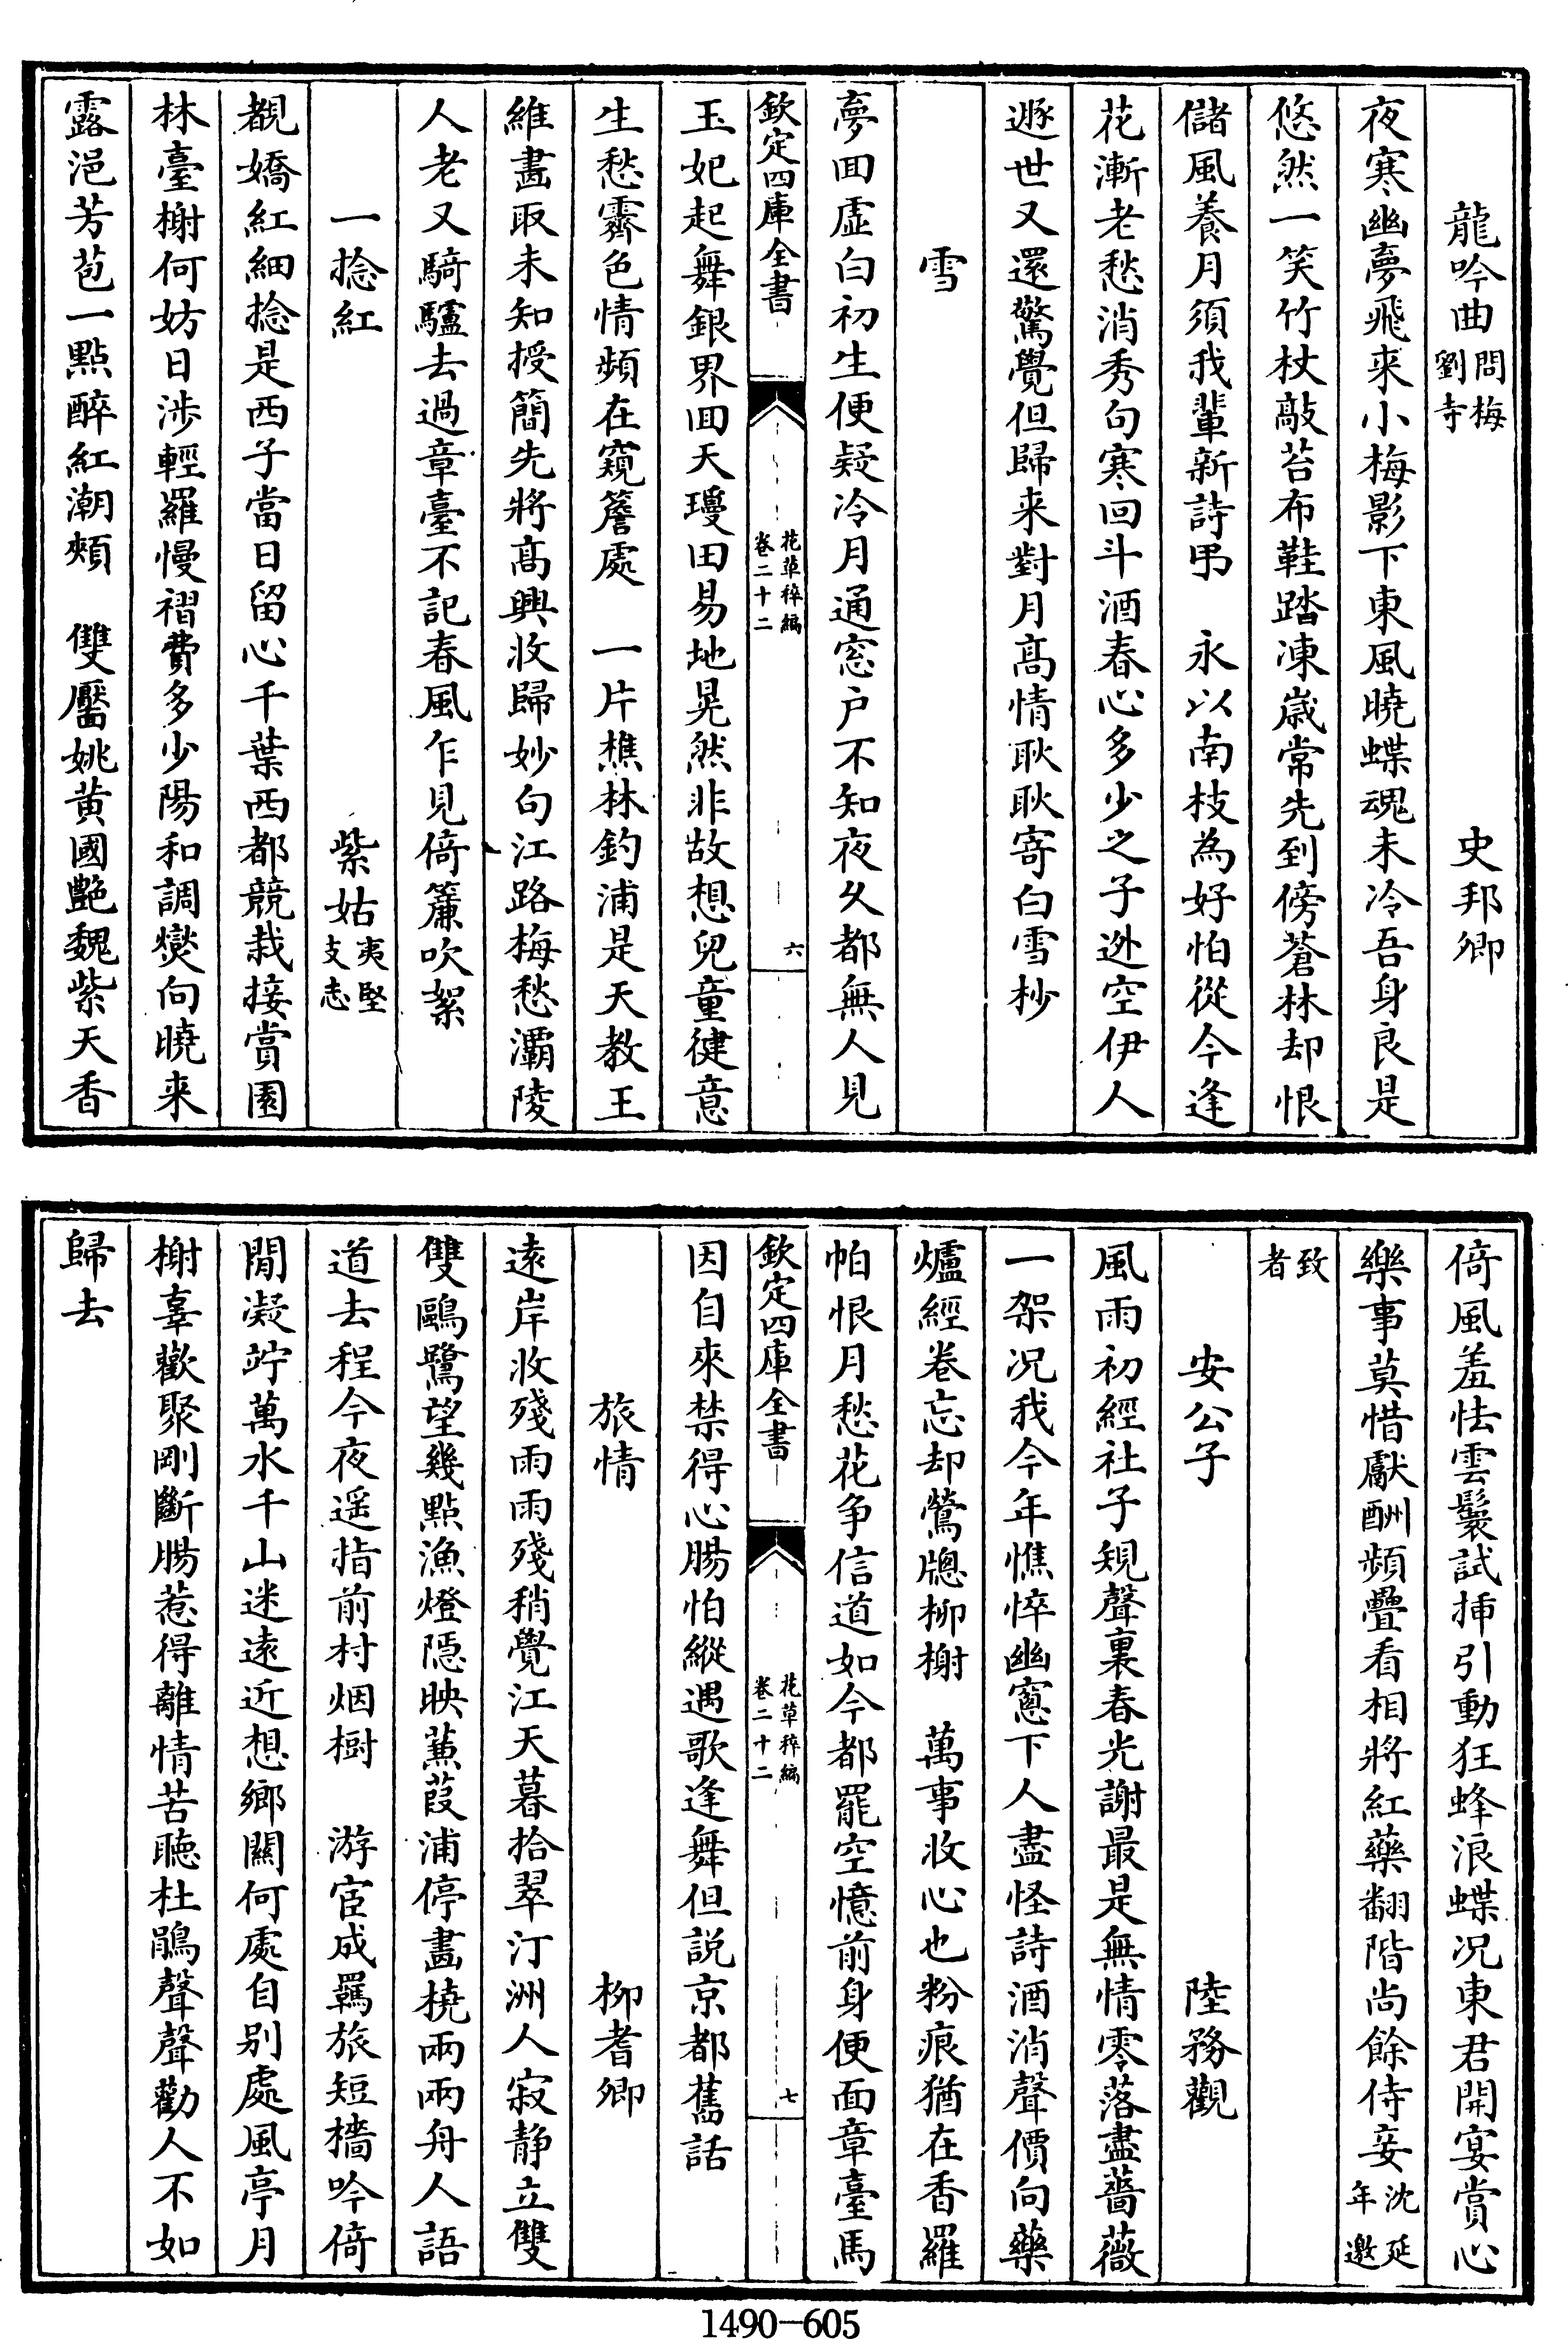 龍吟曲 問梅劉寺 史邦卿
夜寒幽夢飛來小梅影下東風曉蝶魂未冷吾身良是
悠然一笑竹杖敲苔布鞋踏凍歲常先到傍蒼林却恨
儲風養月須我輩新詩弔 永以南枝為好怕從今逢
花漸老愁消秀句寒回斗酒春心多少之子逃空伊人
遯世又還驚覺但歸来對月高情耿耿寄白雪杪
雪
夢回虛白初生便疑冷月通窓户不知夜久都無人見
欽定四庫全書 花草稡編卷二十二 六
玉妃起舞銀界回天瓊田易地晃然非故想兒童健意
生愁霽色情頻在窺簷處 一片樵林釣浦是天教王
維畫取未知授簡先將高興收歸妙句江路梅愁灞陵
人老又騎驢去過章臺不記春風乍見倚簾吹絮
一捻紅 紫姑 夷堅支志
覩嬌紅細捻是西子當日留心千葉西都競栽接賞園
林臺榭何妨日涉輕羅慢褶費多少陽和調燮向曉来
露浥芳苞一點醉紅潮頰 雙靨姚黄國艷魏紫天香
倚風羞怯雲鬟試揷引動狂蜂浪蝶况東君開宴賞心
樂事莫惜獻酬頻疊看相將紅藥翻階尚餘侍妾 沈延年邀
致者
安公子 陸務觀
風雨初經社子規聲裏春光謝最是無情零落盡薔薇
一架况我今年憔悴幽窻下人盡怪詩酒消聲價向藥
爐經卷忘却鶯牕柳榭 萬事收心也粉痕猶在香羅
帕恨月愁花争信道如今都罷空憶前身便面章臺馬
欽定四庫全書 花草稡編卷二十二 七
因自來禁得心腸怕縱遇歌逢舞但説京都舊話
旅情 柳耆卿
遠岸收殘雨雨殘稍覺江天暮拾翠汀洲人寂静立雙
雙鷗鷺望幾點漁燈隱映蒹葭浦停畫橈兩兩舟人語
道去程今夜遥指前村烟樹 游宦成羈旅短檣吟倚
閒凝竚萬水千山迷遠近想鄉關何處自别處風亭月
榭辜歡聚剛斷腸惹得離情苦聽杜鵑聲聲勸人不如
歸去
1490-605